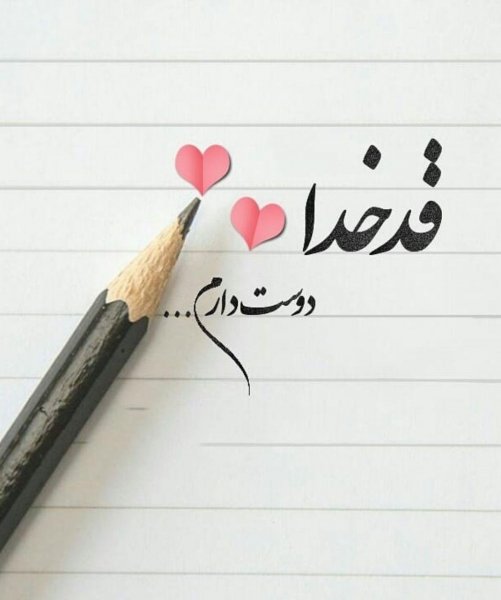 قد خدا
دوست دارم...